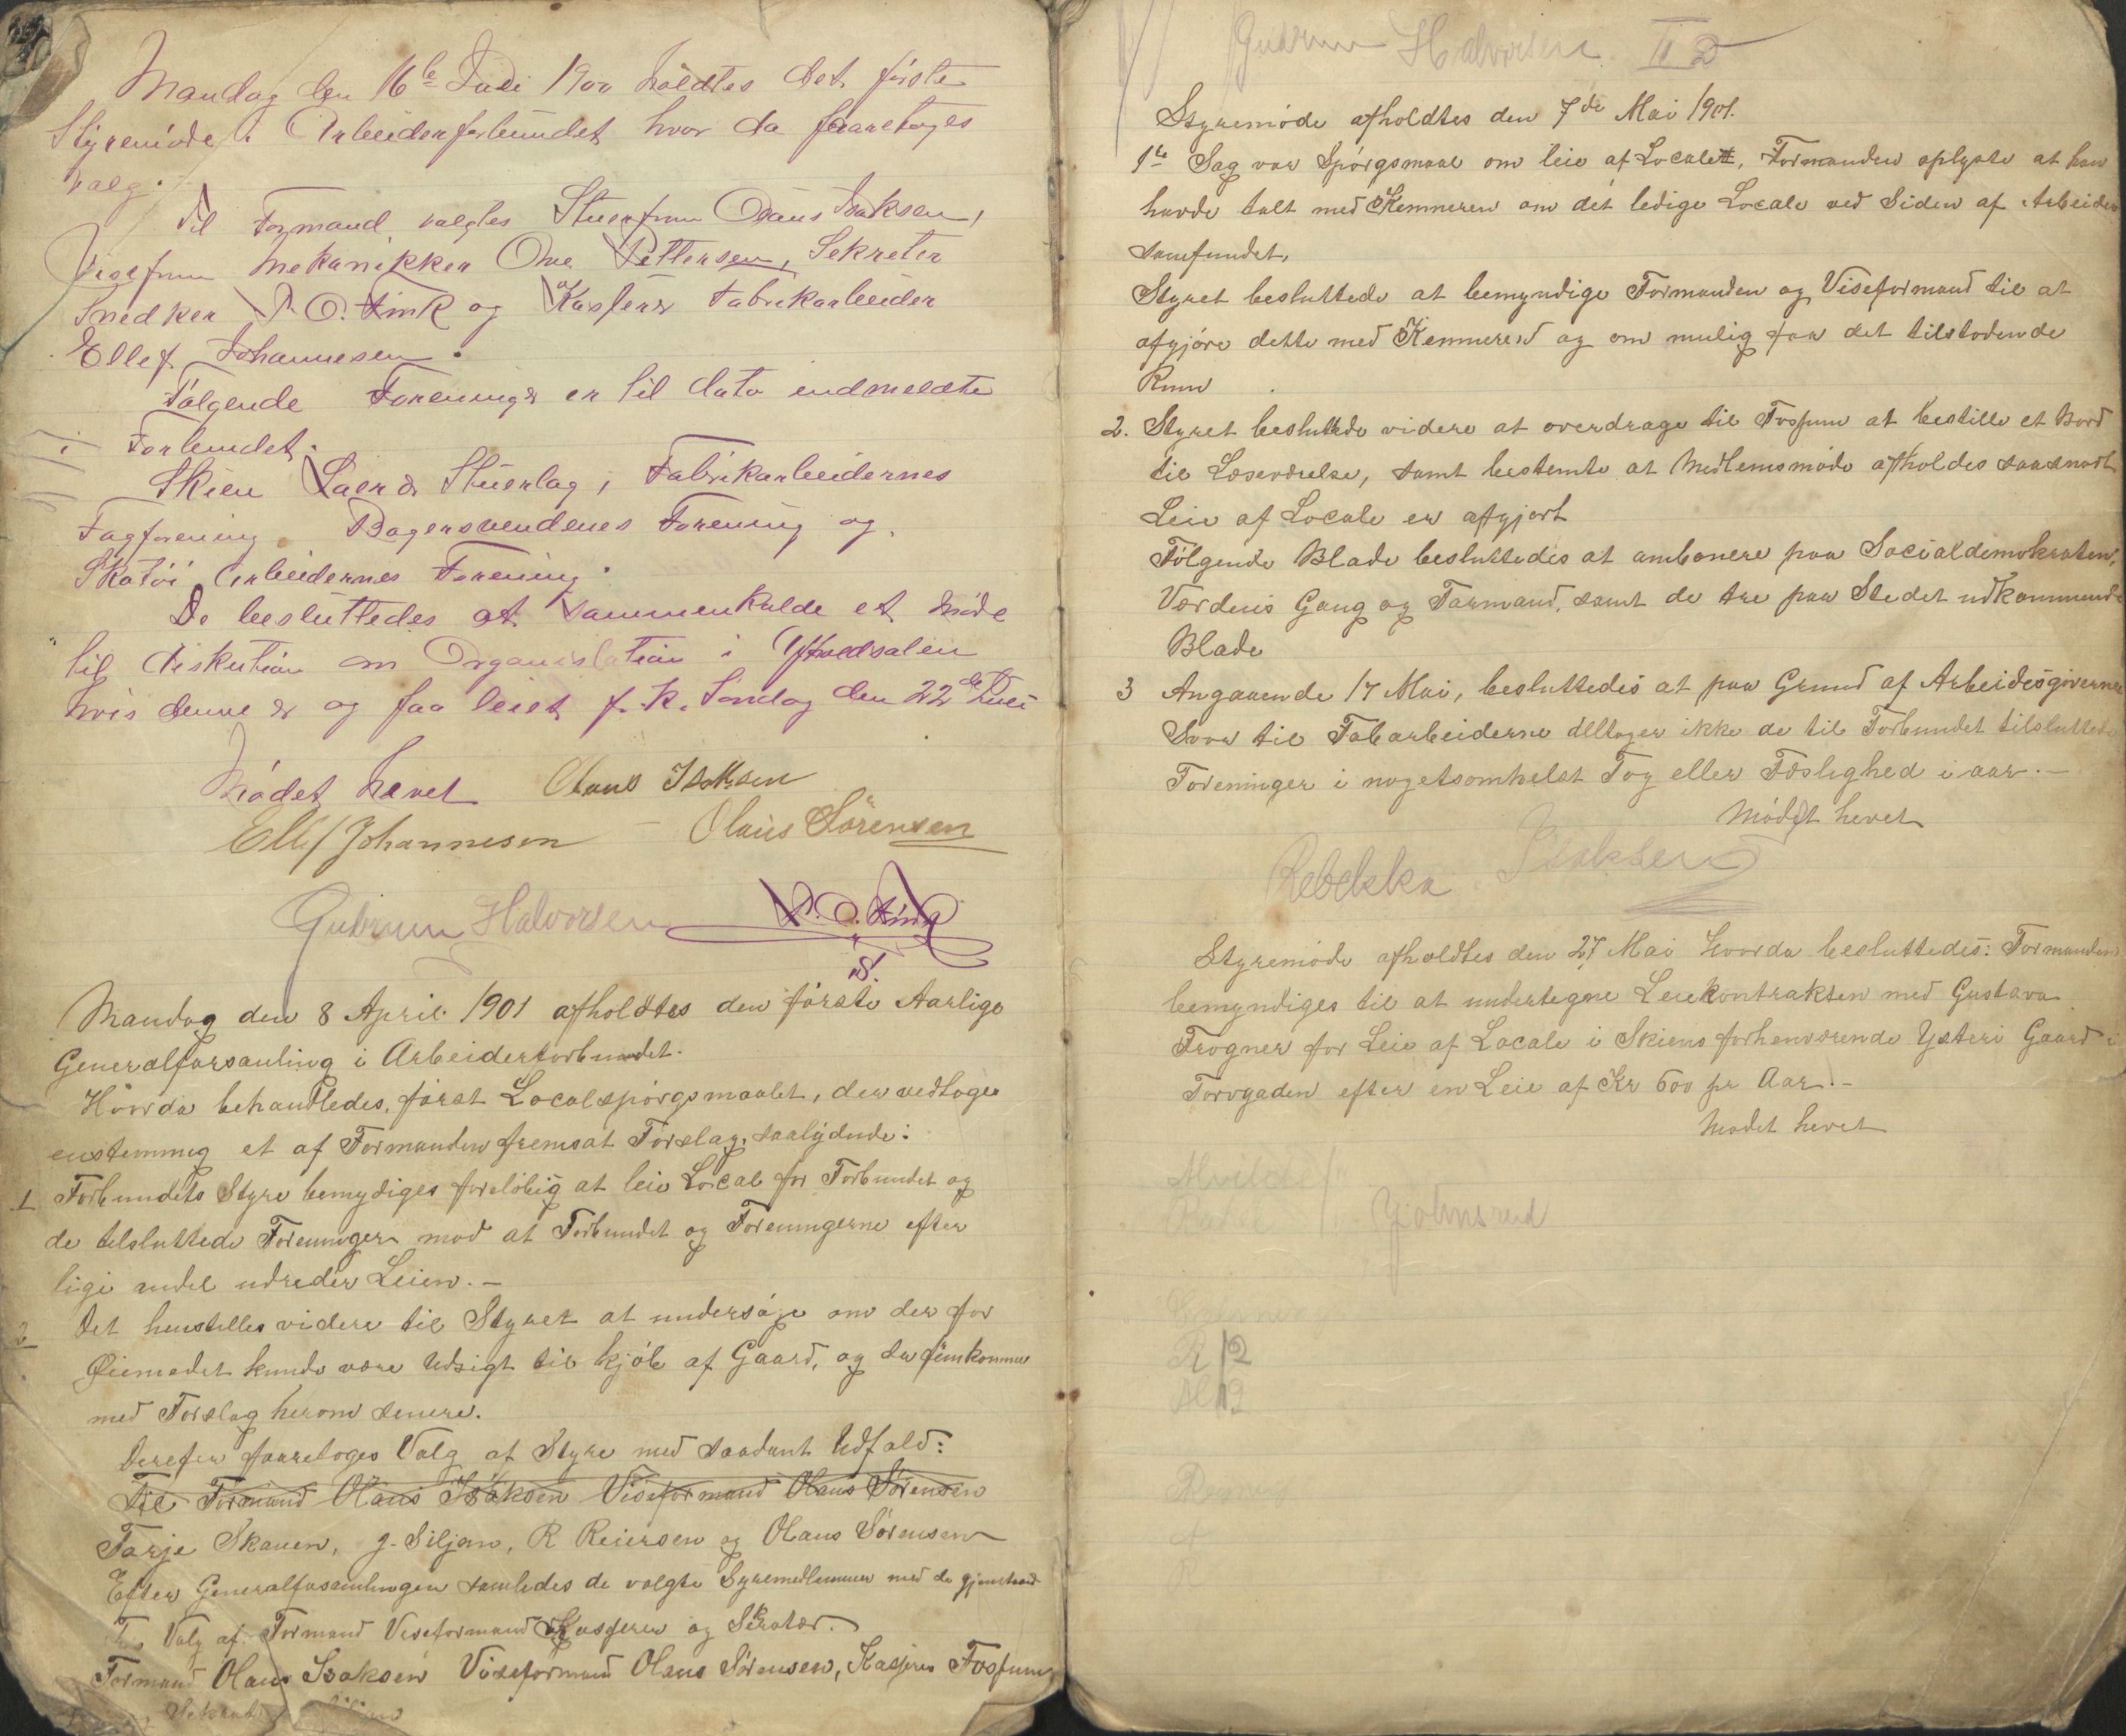 Mandag den 16de Juli 1900 holdtes det förste
Styremöde i Arbeiderforbundet hvor da foaretoges
valg.
Til Formand valgtes Stuerfmn Olaus Isaksen,
Visefmn Mekanikker Ove Pettersen, Sekretær
Snedker P. O. Fink og Kaserer Fabrikarbeider
Ellef Johannesen.
Fölgende Foreninger er til dato indmeldte
i Forbundet.
Skien Laer & Stuerlag, Fabrikarbeidernes
Fagforening. Bagersvendenes Forening og
Skotöi Arbeidernes Forening.
De besluttedes at sammenkalde et möde
til diskution om Organislation i
hvis denne er og faa leiet f. k. Söndag den 22de Juli
Mödet hævet Olaus Isaksen
Ellef Johannesen – Olaus Sörensen
Gudrun Halvorsen P. O. Fink
S.
Mandag den 8 April 1901 afholdtes den förste Aarlige
Generalforsamling i Arbeiderforbundet.
Hvorda behandledes, först Localspörgsmaalet, der vedtoges
enstemmig et af Formanden fremsat Forslag, saalydende:
1 Forbundets Styre bemydiges forelöbig at leie Local for Forbundet og
de telsluttede Foreninger mod at Forbundet og Foreningerne efter
lige andel udreder Leien. –
2 Det henstilles videre til Styret at undersöge om der for
Öiemedet kunde være Udsigt til kjöb af Gaard, og da fremkomme
med Forslag herom senere.
Derefter foaretoges Valg af Styre med saadant Udfald:
Til Formand Olaus Isaksen Viseformand Olaus Sörensen
Tarje Skauen, g. Siljan, R Reiersen og Olaus Sörensen
Efter Generalforsamlingen samledes de valgte Syremedlemmer med de gjenstaaend
Valg af Formand Viseformand Kasserer og Sekratær.
Formand Olaus Isaksen Viseformand Olaus Sörensen, Kasjerer Fossum
Sekratær Siljan
Gudrun Halvorsen. II D
Styremöde afholdtes den 7de Mai 1901.
1ste Sag var Spörgsmaal om leie af Locale, Formanden oplyste at han
havde talt med Kemneren om det ledige Locale ved Siden af Arbeider
samfundet,
Styret besluttede at bemyndige Formanden og Viseformand til at
afgjöre dette med Kemneren og om mulig faa det tilstodende
Rum
2. Styret besluttede videre at overdrage til Fossum at bestille et Bord
til Læseværelse, samt bestemte at Medlemsmöde afholdes saasnart
Leie af Locale er afgjort
Fölgende Blade besluttedes at ambonere paa Socialdemokraten,
Verdens Gang og Tarmand, samt de tre paa Stedet udkommende
Blade
3 Angaaende 17 Mai, besluttedes at paa Grund af Arbeidesgivernes
Svar til Fabarbeiderne deltager ikke de til Forbundet tilsluttede
Foreninger i nogetsomhelst Tog eller Festlighed i aar. –
Mödet hevet
Rebekka Isaksen
Styremöde afholdtes den 27 Mai hvorda besluttedes: Formanden
bemyndiges til at undertegne Leiekontrakten med Gustava
Frogner for Leie af Locale i Skiens forhenværende Ysteri Gaard i
Torvgaden efter en Leie af Kr 600 pr Aar. –
Mödet hevet
R 12